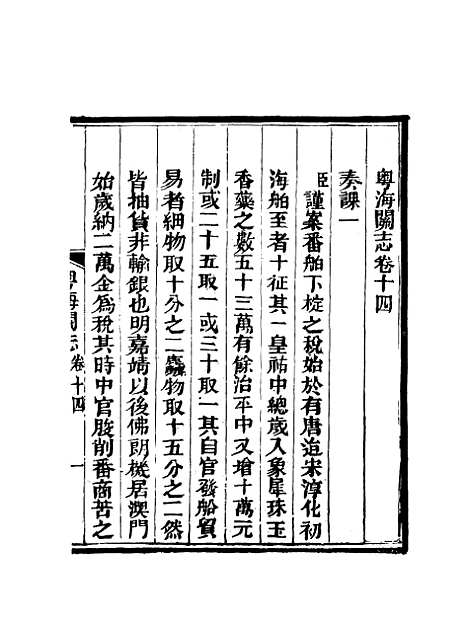 粵海關志卷十四
奏課一
臣謹案番舶下椗之稅始於有唐迨宋淳化初
海舶至者十征其一皇祐中總歲入象犀珠玉
香藥之數五十三萬有餘治平中又增十萬元
制或二十五取一或三十取一其自官發船貿
易者細物取十分之二麤物取十五分之二然
皆抽貨非輸銀也明嘉靖以後佛朗機居澳門
始歲納二萬金為稅其時中官朘削番商苦之
粵海關志 卷十四 一